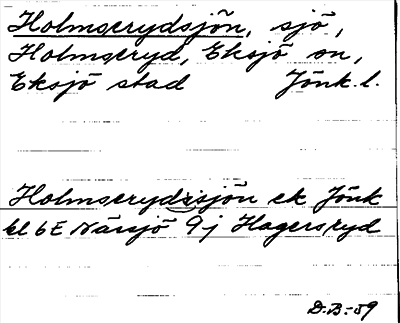 Holmserydsjön, sjö,
Holmseryd, Eksjö sn,
Eksjö stad Jönk. l.
Holmserydsjön ek Jönk
bl 6E Nässjö 9j Hagersryd
D.B.-59